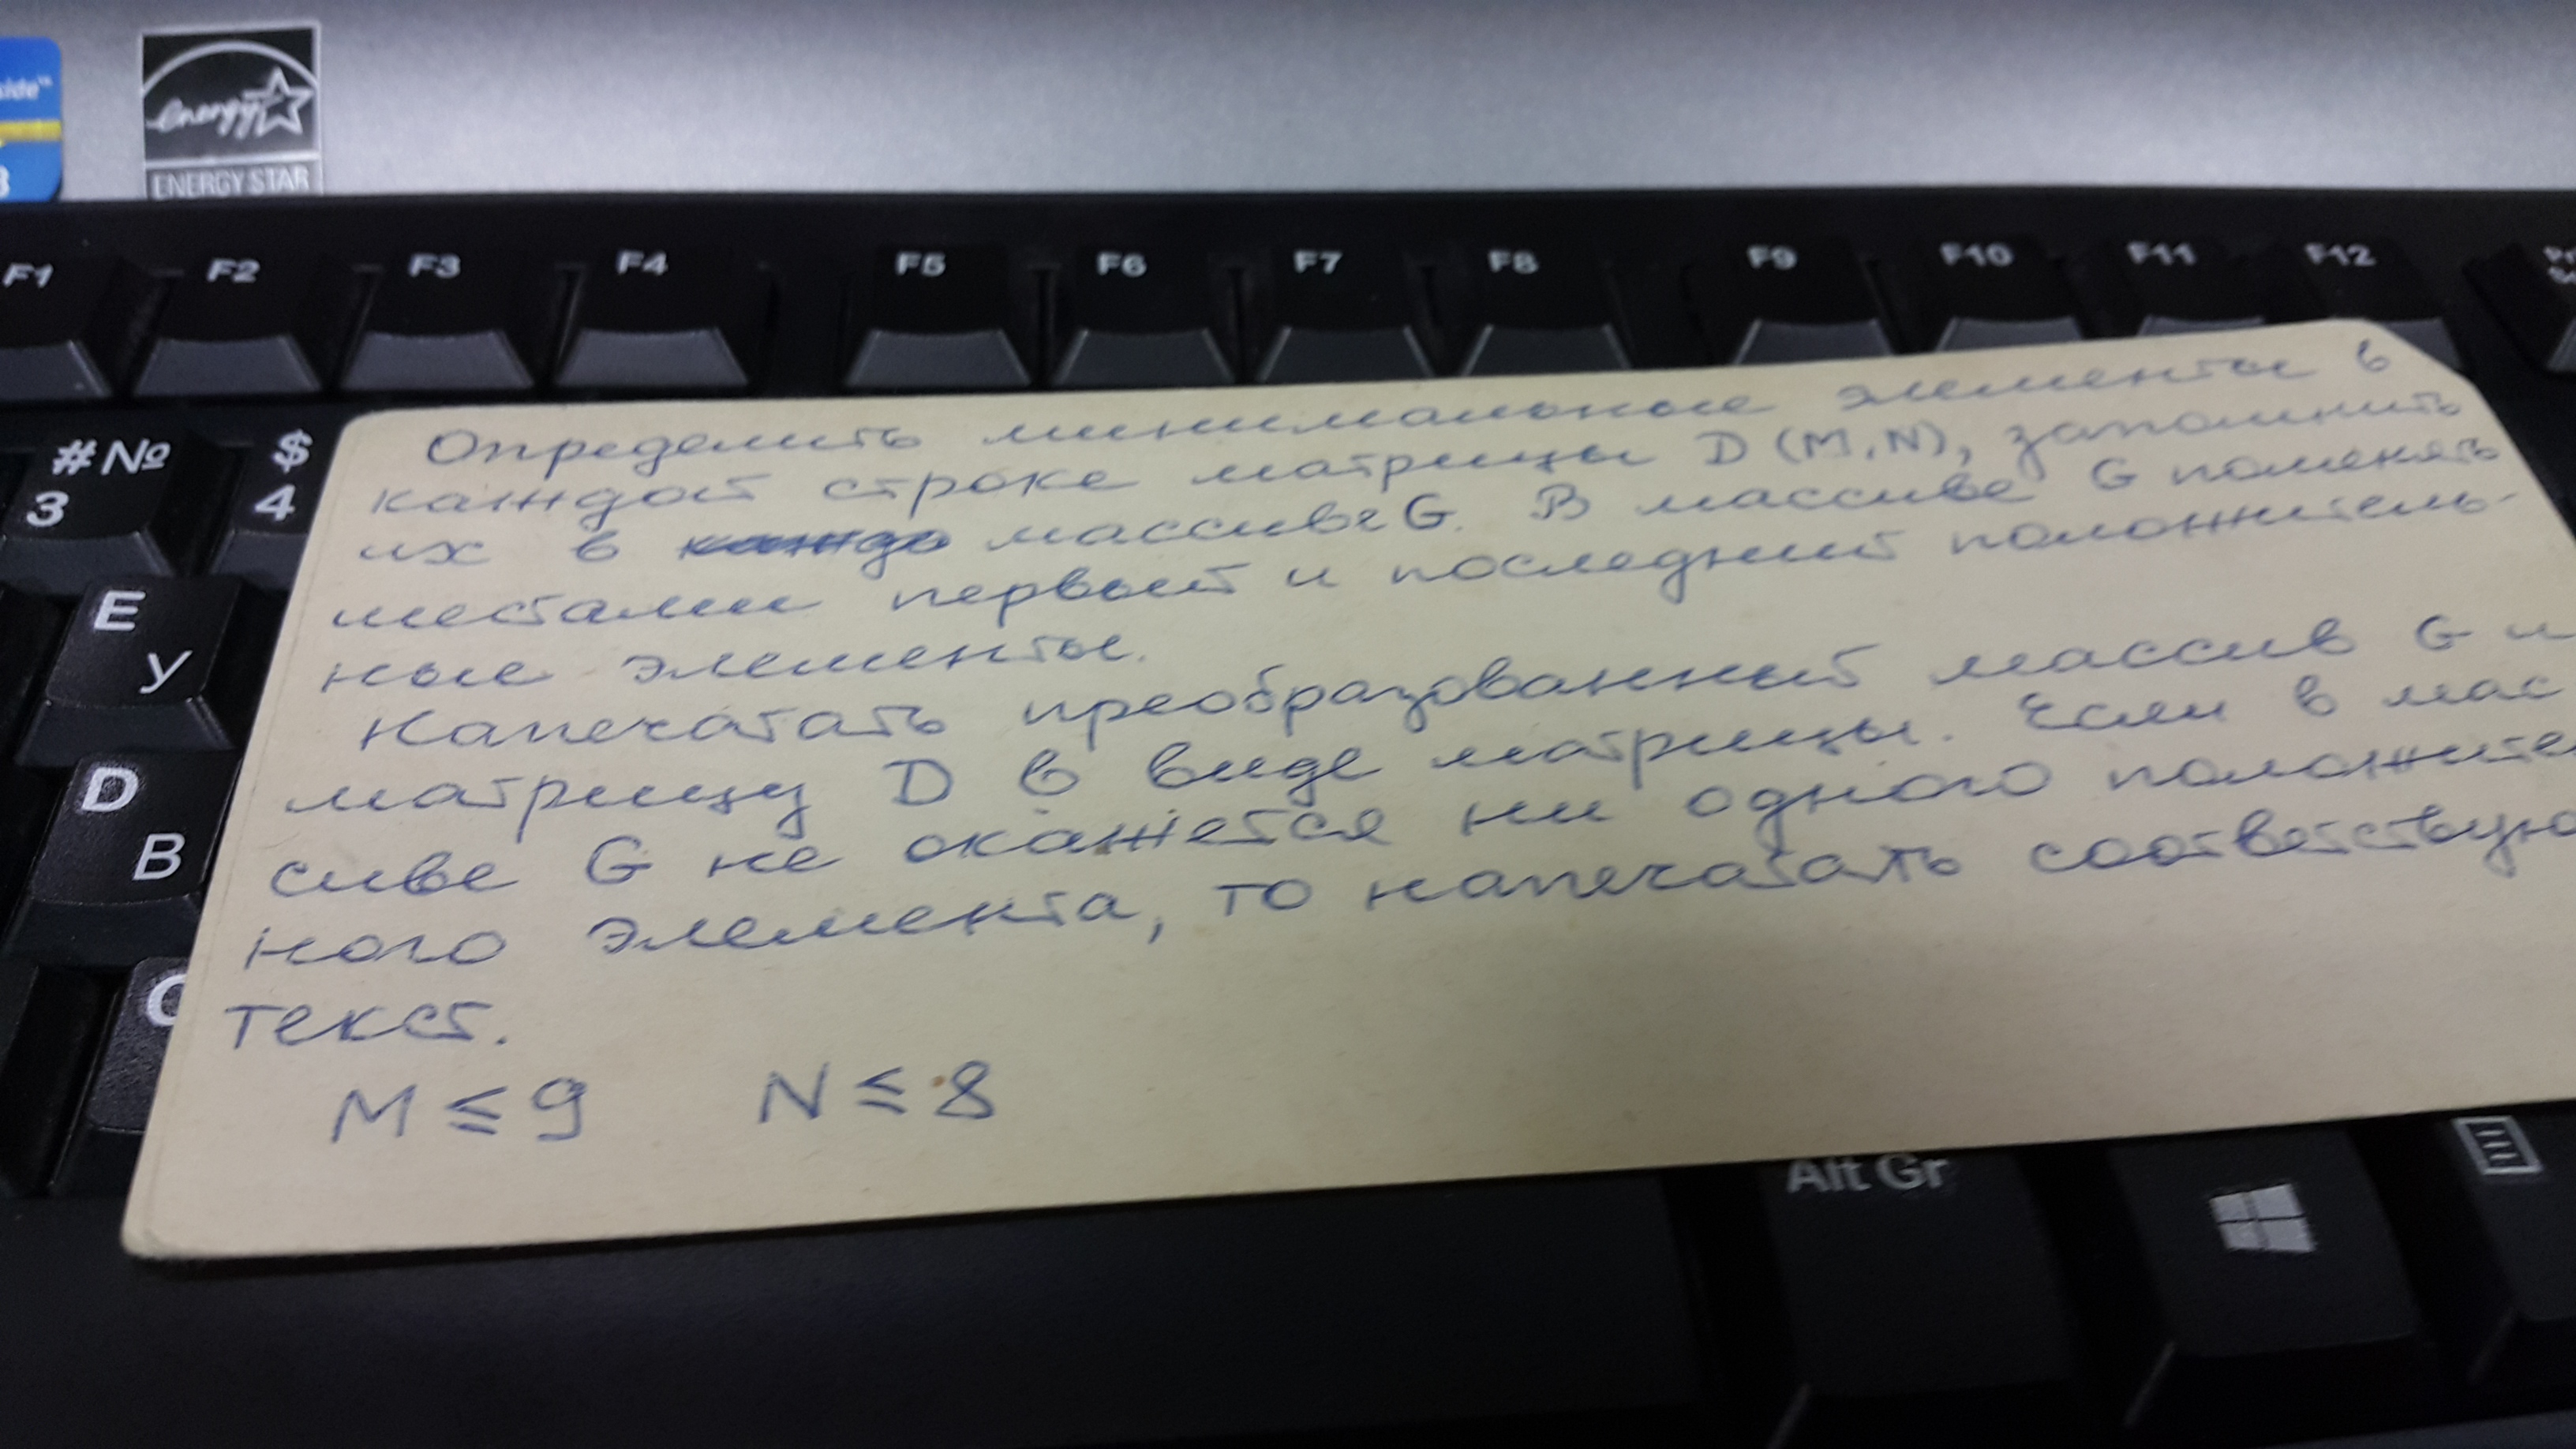 side™
3
energy
ENERGY STAR
F1 F2 F3 F4 F5 F6 F7 F8 F9 F10 F11 F12
#№
3
$
4
E
У
D
В
C
Определить минимальные элементы в
каждой строке матрицы D (M,N), запомнить
их в массиве G. В массиве G поменять
местами первый и последний положитель-
ные элементы.
Напечатать преобразованный массив G и
матрицу D в виде матрицы. Если в мас
сиве G не окажется ни одного положите
ного элемента, то напечатать соответствую
текст.
M ≤ 9 N ≤ 8
Alt Gr